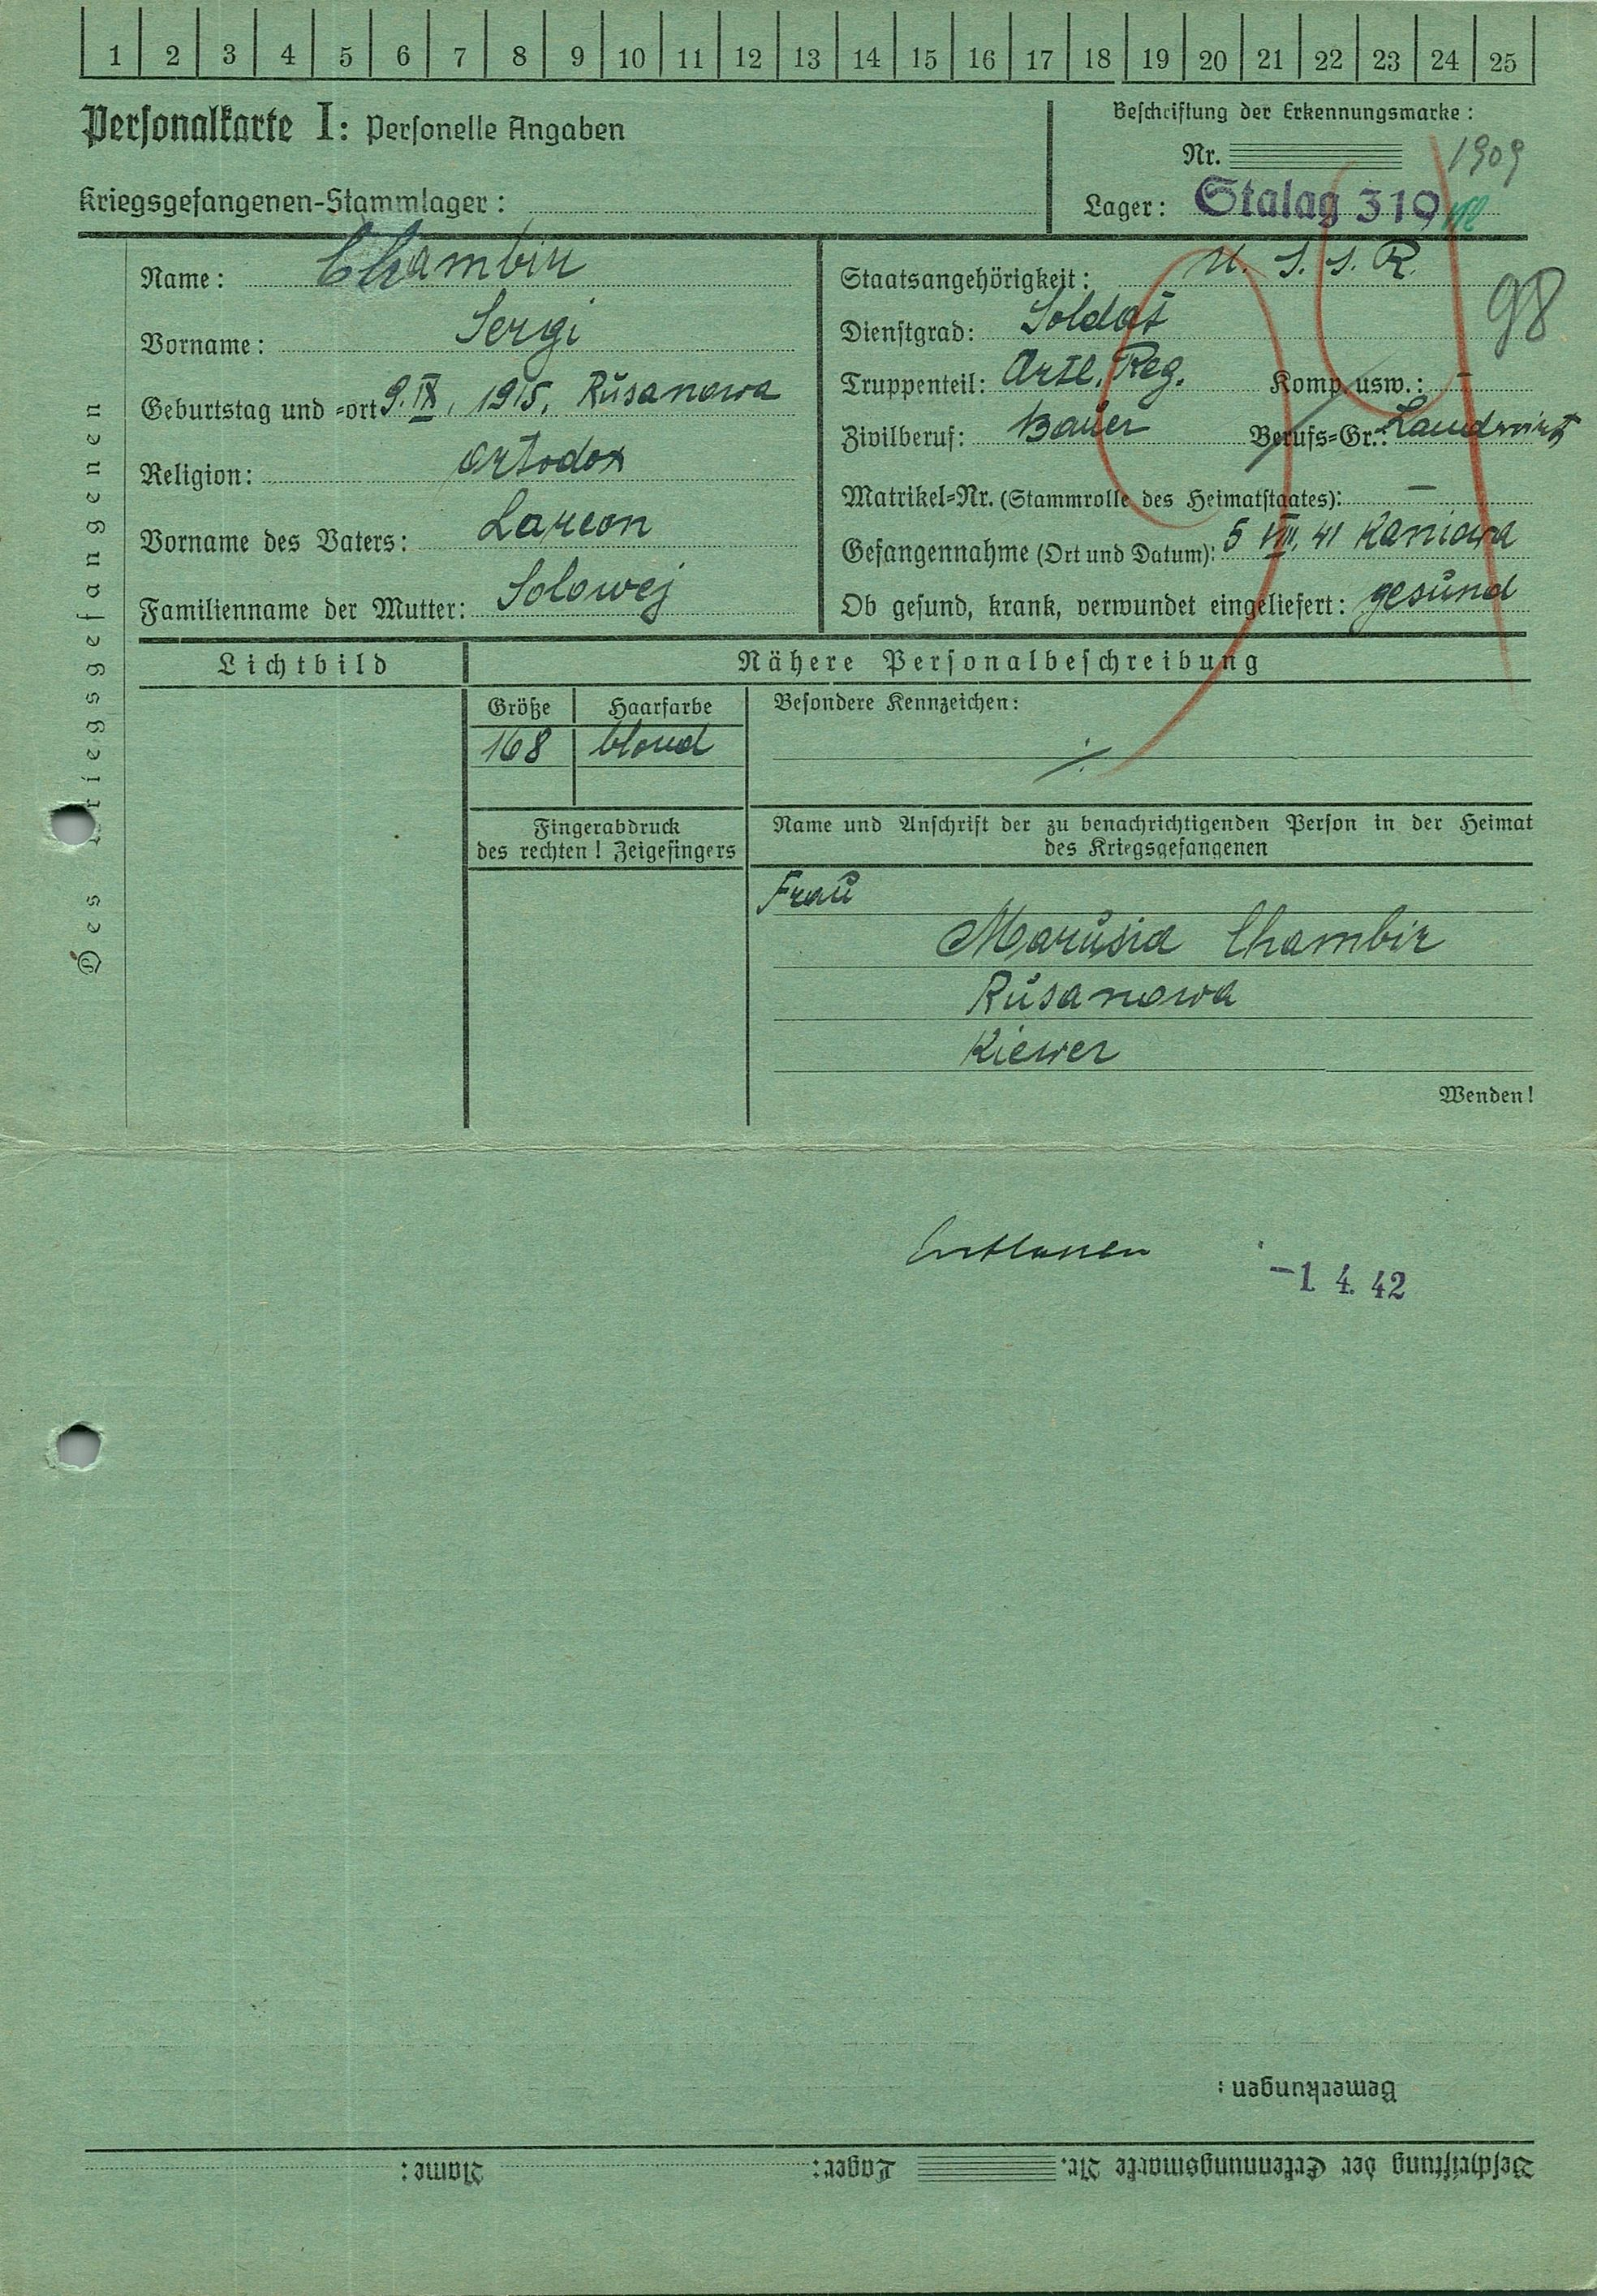 1 2 3 4 5 6 7 8 9 10 11 12 13 14 15 16 17 18 19 20 21 22 23 24 25
Personalkarte I: Personelle Angaben
Kriegsgefangenen-Stammlager:
Beschriftung der Erkennungsmarke:
Nr. 1909
Lager: Stalag 319
98
Des Kriegsgefangenen
Name: Chambir
Vorname: Sergi
Geburtstag und -ort 9. IX. 1915. Rusanowa
Religion: Ortodox
Vorname des Vaters: Lareon
Familienname der Mutter: Solowej
Staatsangehörigkeit: U. S. S. R.
Dienstgrad: Soldat
Truppenteil: Artl. Reg. Komp. usw.: -
Zivilberuf: Bauer Berufs-Gr.: Landwirt
Matrikel-Nr. (Stammrolle des Heimatstaates): —
Gefangennahme (Ort und Datum): 5 VIII. 41 Kaniowa
Ob gesund, krank, verwundet eingeliefert: gesund
Lichtbild
Nähere Personalbeschreibung
Größe Haarfarbe
168 blond
Besondere Kennzeichen:
./.
Fingerabdruck
des rechten! Zeigefingers
Name und Anschrift der zu benachrichtigenden Person in der Heimat
des Kriegsgefangenen
Frau
Marusia Chambir
Rusanowa
Kiewer
Wenden!
Entlassen -1. 4. 42
Bemerkungen:
Beschriftung der Erkennungsmarke Nr. Lager: Name: